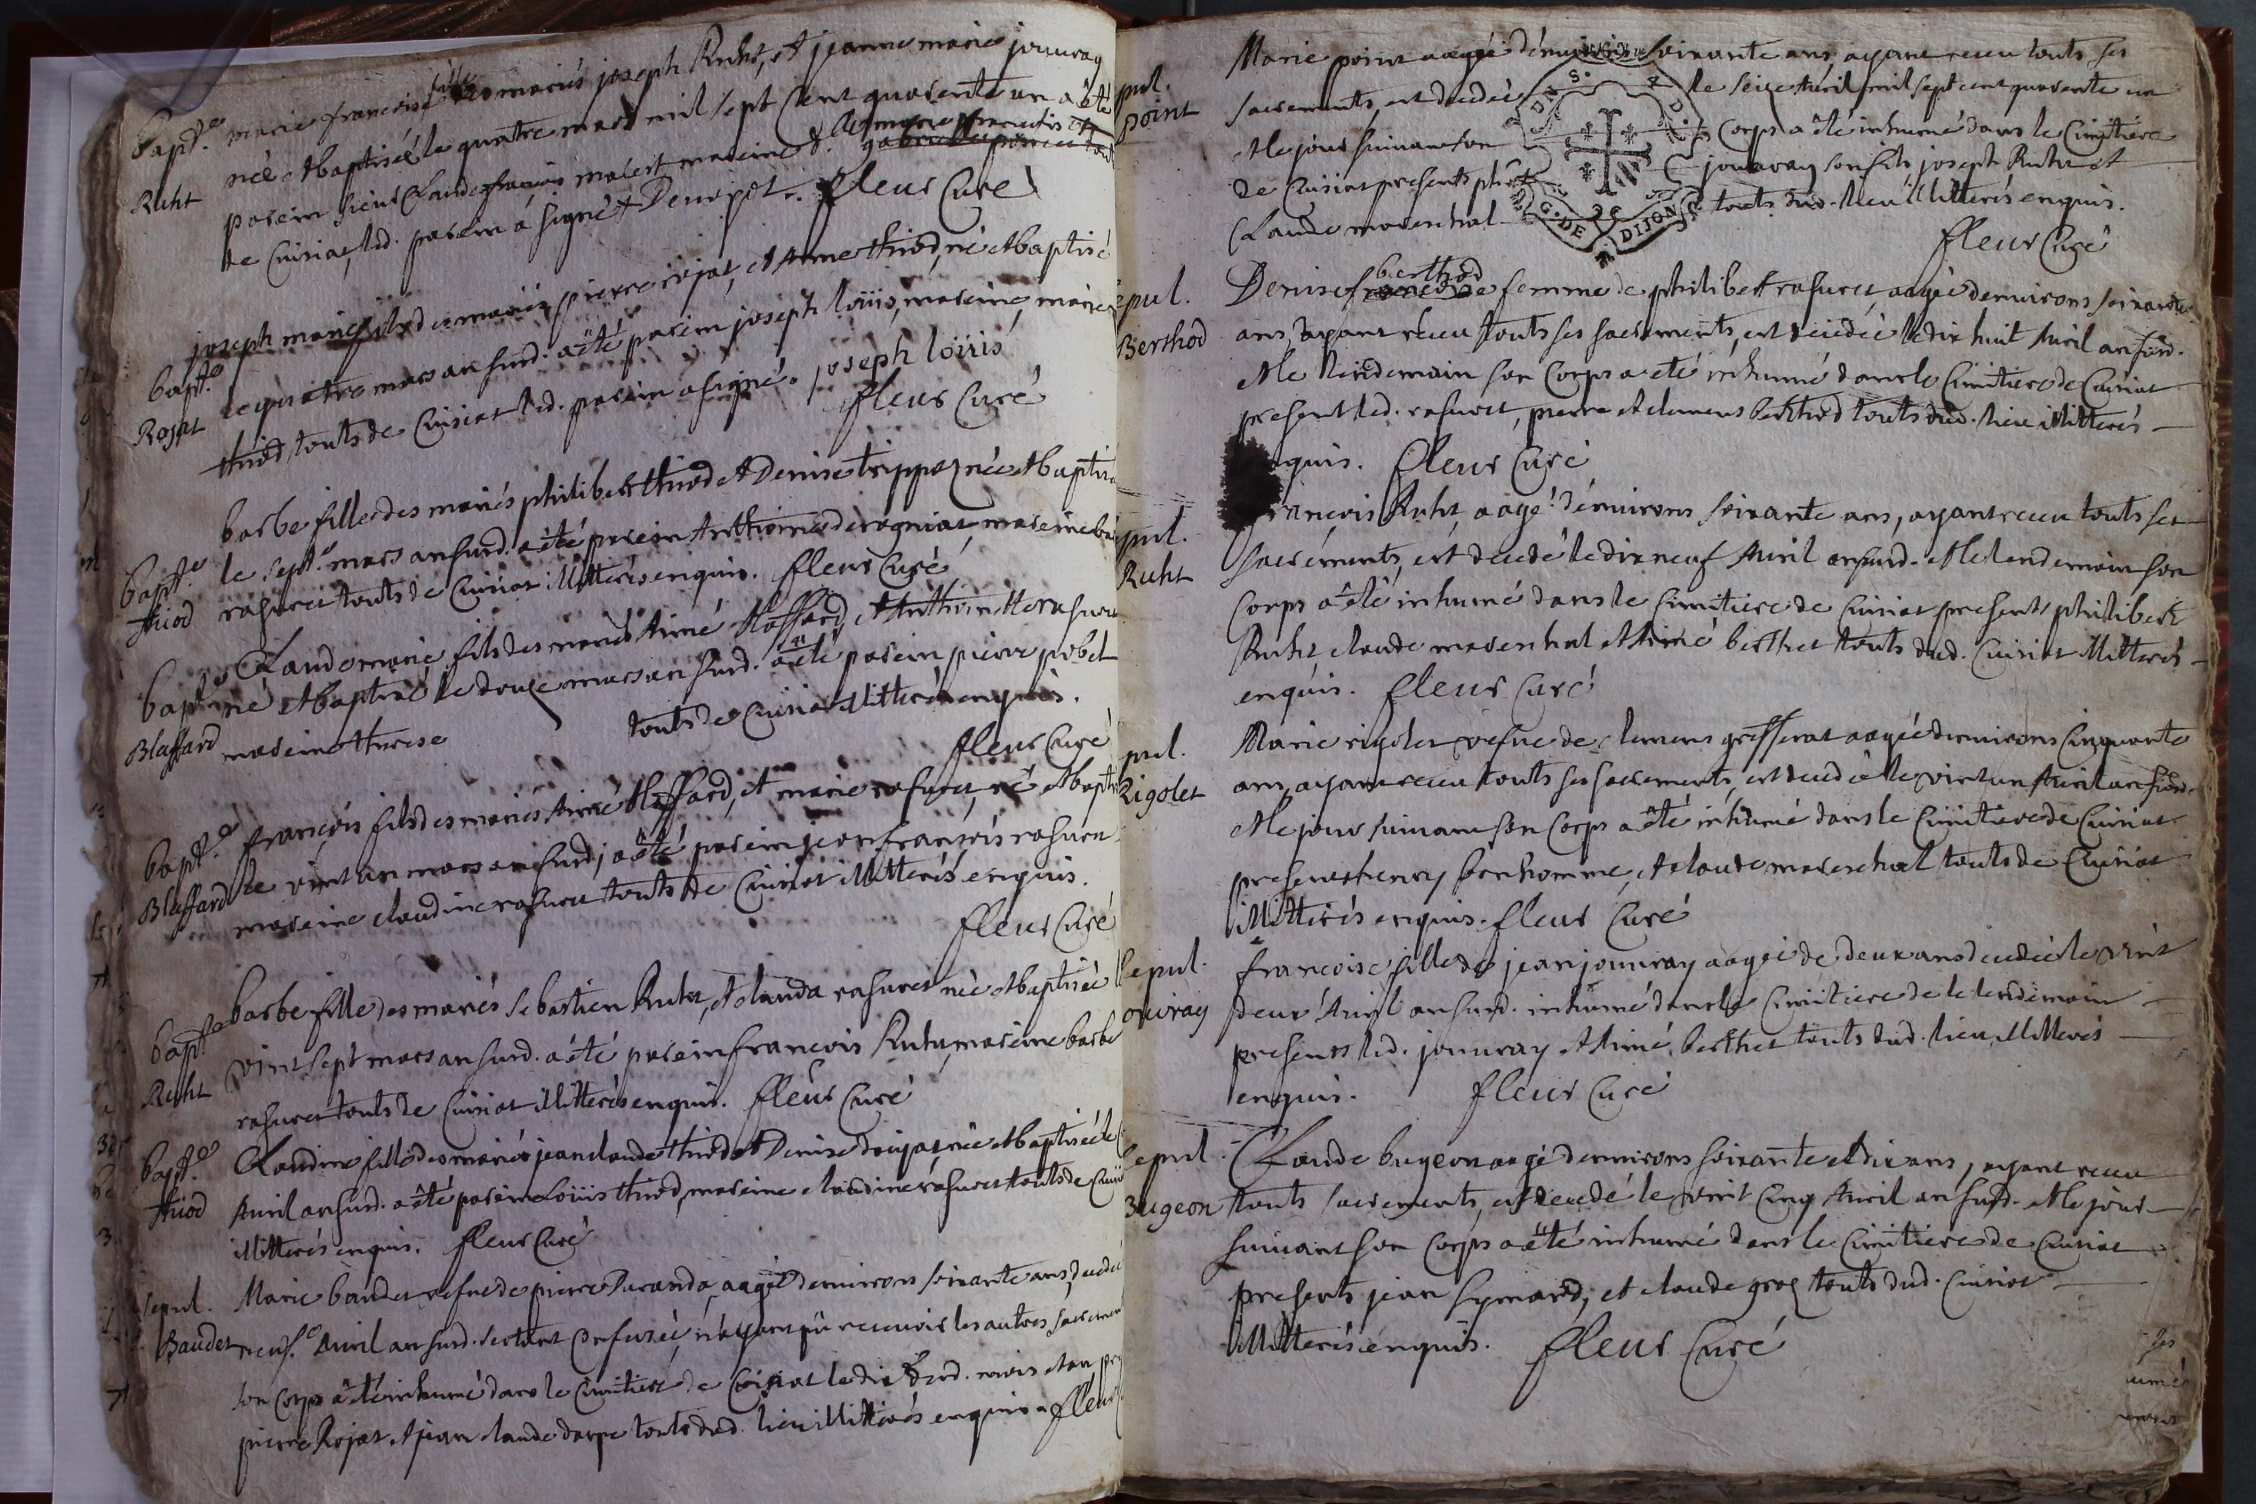 Bapt.e
Ruht
marie francoise fille des mariés joseph Ruht, et jeanne marie jouuray
née et baptisée le quatre mars mil sept cent quarente un a été
parein sieur Claude françois malést mareine d.
de Cuisiat, led. parein a signé
fleur Curé
Bapt.e
Rojat
joseph marie fils des mariés pierre rojat, et Anne thiod, né et baptisé
le quatre mars an sud. a été parein joseph loüis, mareine, marie
thiod touts de Cuisiat led. parein a signé. joseph loüis
fleur Curé
Bapt.e
thiod
barbe fille des mariés philibert thiod et Denise trippoz née et baptisé
le sept.e mars an sud. a été parein Anthoine de rogniat, mareine bar
rasurez touts de Cuisiat illitterés enquis. fleur Curé
Bapt.e
Blaffard
Claude marie fils des mariés Aimé blaffard, et Anthoinette rasurez
né et baptisé le douze mars an sud. a été parein pierre pobel
mareine therese touts de Cuisiat illitterés enquis.
fleur Curé
Bapt.e
Blaffard
françois fils des mariés Aimé blaffard, et marie rasurez, né et bapt
le vint un mars an sud. a été parein jean françois rasurez
mareine claudine rasurez touts de Cuisiat illitterés enquis.
fleur Curé
Bapt.e
Ruht
barbe fille des mariés sebastien Ruht, et clauda rasurez née et baptisée l
vint sept mars an sud. a été parein francois Ruht, mareine barbe
rasurez touts de Cuisiat illitterés enquis. fleur Curé
Bapt.e
thiod
Claudine fille des mariés jean claude thiod et Denise rojat née et baptisée le
Auril an sud. a été parein Loüis thiod, mareine claudine rasurez touts de Cuisi
illitterés enquis. fleur Curé
sepul.
Baudet
Marie baudet vefue de pierre Duranda, aagée d'enuirons soixante ans, decedé
neuf.e Auril an sud. s'estant Confessée, n'ayant pû receuoir les autres sacrem
son corps a été inhumé dans le Cimitiere de Cuisiat le dix dud. mois et an pr
pierre Rojat et jean claude darpe touts dud. lieu illitterés enquis. fleur
pul.
point
Marie point aagée d'enuirons soixante ans ayant receu touts ses
sacrements, est decedée le seize Auril mil sept cent quarente un
et le jour suiuant son Corps a été inhumé dans le Cimitiere
de Cuisiat presents jouuray son fils joseph Ruht et
Claude mareschal touts dud. lieu illitterés enquis.
fleur Curé
G. DE DIJON
epul.
Berthod
Denise berthod femme de philibert rasurez aagée d'enuirons soixante
ans, ayant receu touts ses sacrements, est decedée le dix huit Auril an sud.
et le lindemain son Corps a été inhumé dans le Cimitiere de Cuisiat
present led. rasurez, pierre et clemens berthod touts dud. lieu illitterés
enquis. fleur Curé
pul.
Ruht
francois Ruht, aagé d'enuirons soixante ans, ayant receu touts ses
sacréments, est decedé le dix neuf Auril an sud. et le lendemain son
Corps a été inhumé dans le Cimitiere de Cuisiat presents philibert
Ruht claude mareschal et Aimé berthet touts dud. Cuisiat illitterés
enquis. fleur Curé
pul.
Rigolet
Marie rigolet vefue de clemens grefferat aagée d'enuirons Cinquante
ans, ayant receu touts ses sacrements, est decedée le vint un Auril an sud.
et le jour suiuant son Corps a été inhumé dans le Cimitiere de Cuisiat
presents henry bonhomme, et claude mareschal touts de Cuisiat
illitterés enquis. fleur Curé
sepul.
ouvray
francoise fille de jean jouuray aagée de deux ans decedée le vint
deux Auril an sud. inhumé dans le Cimitiere de le lendemain
presents led. jouuray et Aimé berthet touts dud. lieu illitterés
enquis. fleur Curé
Sepul.
Bugeon
Claude bugeon aagé d'enuirons soixante et dix ans, ayant receu
touts sacrements, est decedé le vint cinq Auril an sud. et le jour
suiuant son Corps a été inhumé dans le Cimitiere de Cuisiat
presents jean symard, et claude groz touts dud. Cuisiat
illitterés enquis. fleur Curé